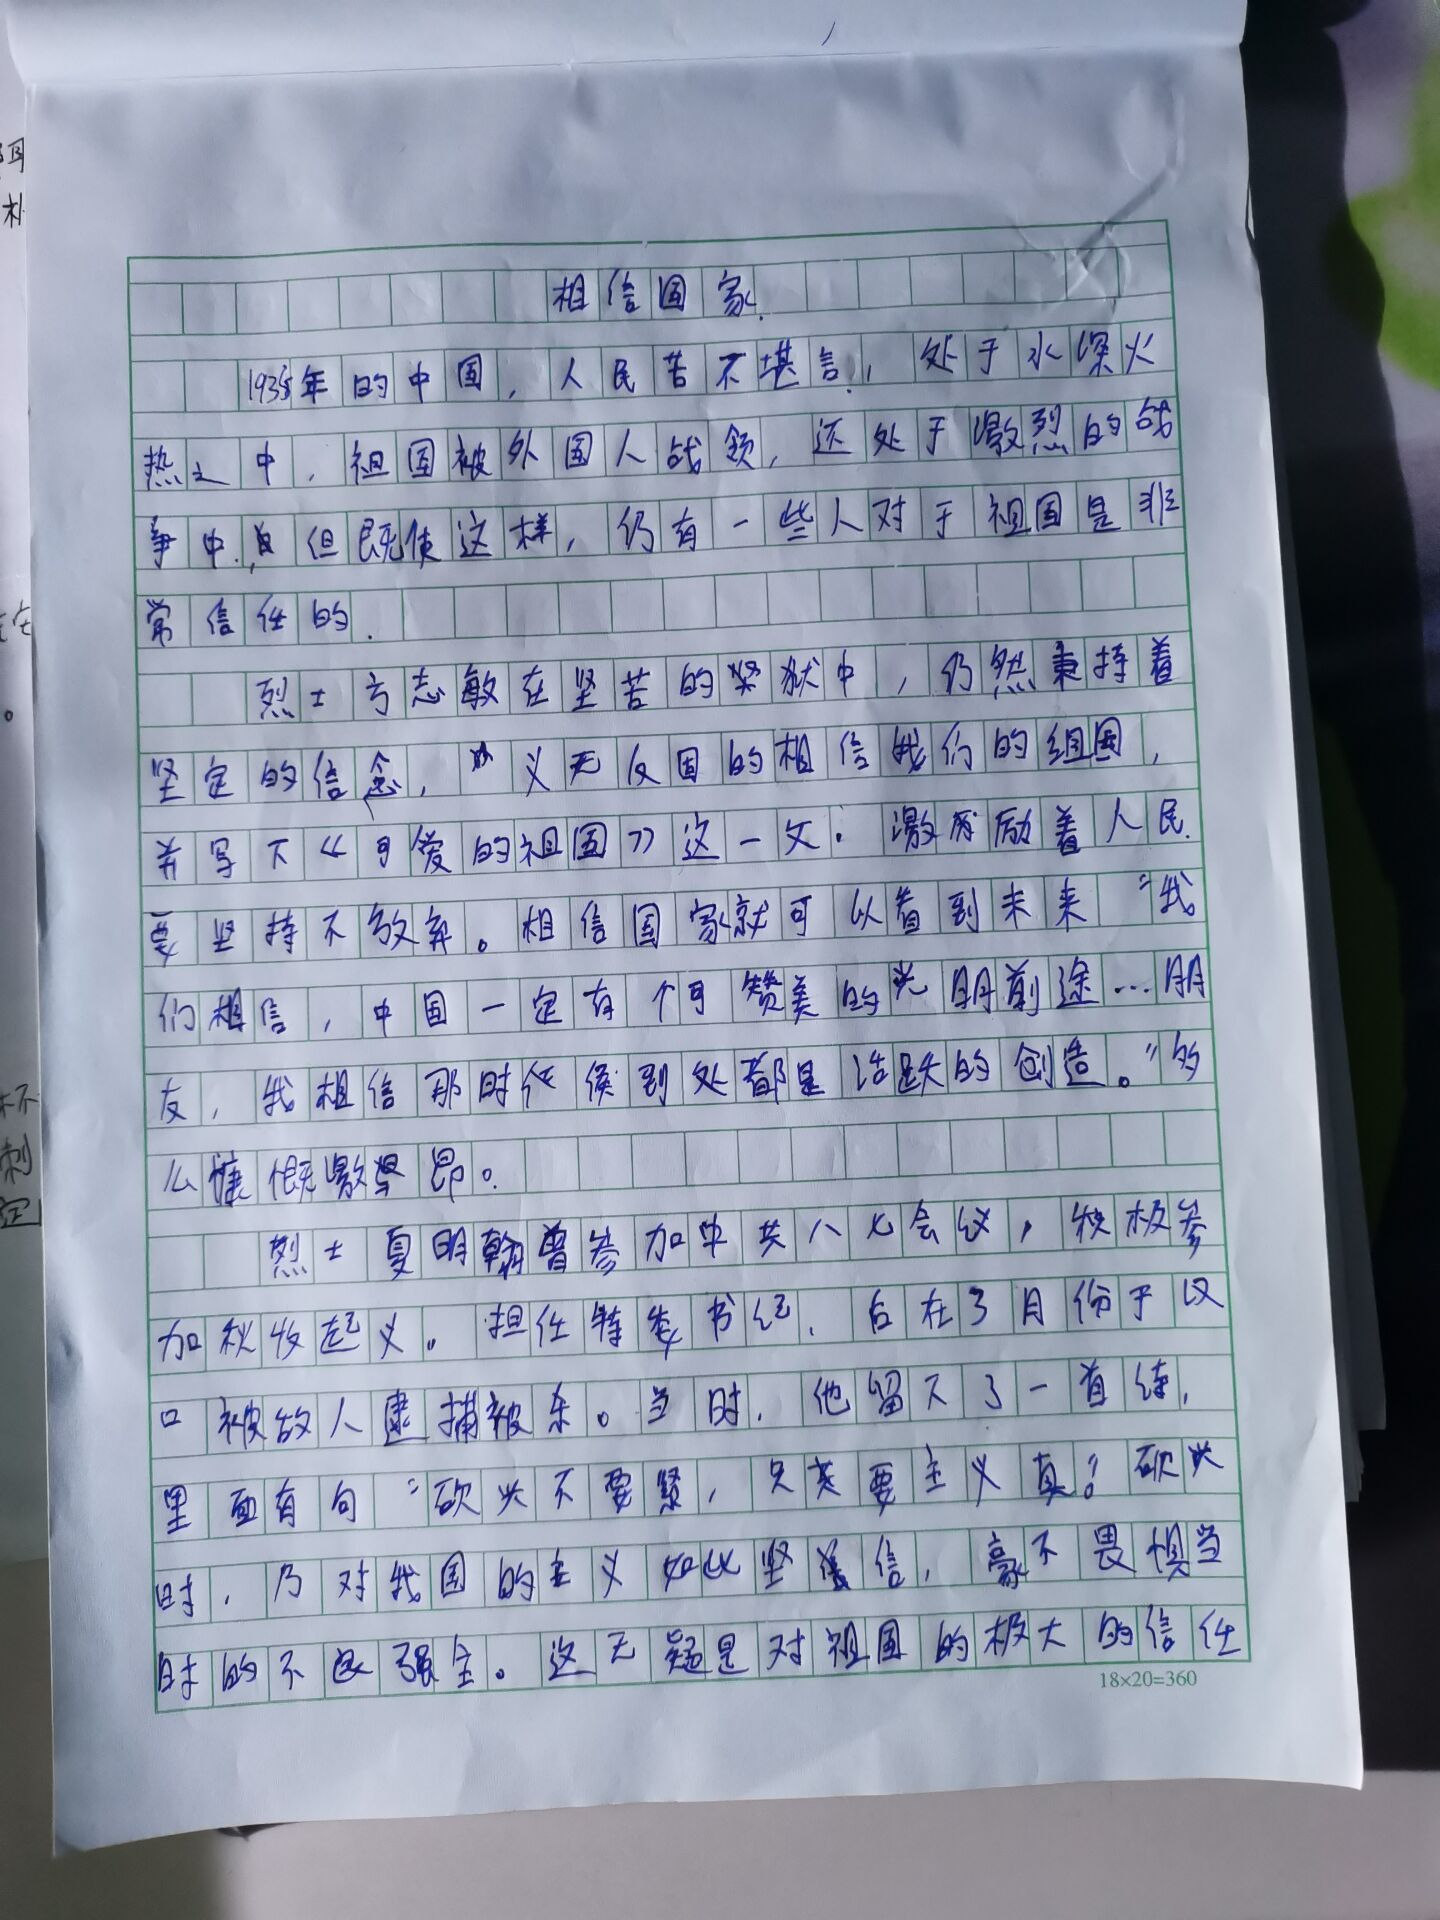 相信国家.
1935年的中国，人民苦不堪言，处于水深火
热之中，祖国被外国人战领，还处于激烈的战
争中，但既使这样，仍有一些人对于祖国是非
常信任的.
烈士方志敏在坚苦的牢狱中，仍然秉持着
坚定的信念，义无反国的相信我们的组国，
并写下《可爱的祖国》这一文.激励着人民.
要坚持不放弃。相信国家就可以看到未来“我
们相信，中国一定有个可赞美的光明前途…朋
友，我相信那时候到处都是活跃的创造。”多
么慷慨激昂。
烈士夏明翰曾参加中共八七会议，积极参
加秋收起义。担任特委书记，后在3月份于汉
口被敌人逮捕被杀。当时，他留下了一首诗，
里面有句“砍头不要紧，只要主义真”砍头
时，乃对我国的主义如此坚信，豪不畏惧当
时的不良强主。这无疑是对祖国的极大的信任
18×20=360